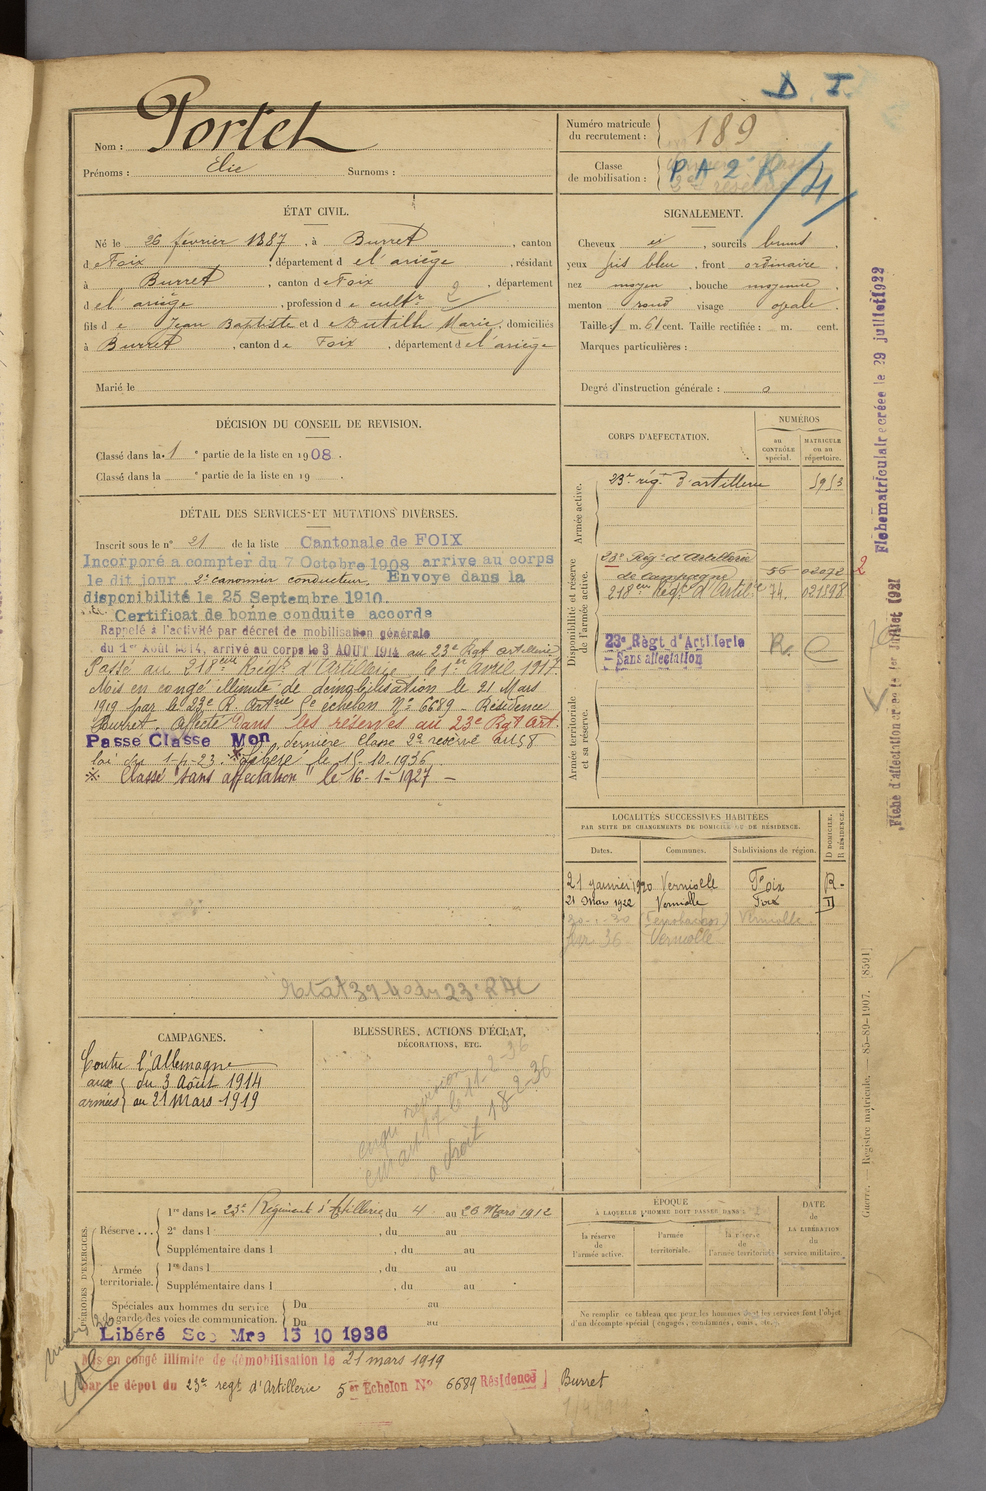 D. I.
Nom : Portet
Prénoms : Elie Surnoms :
Numéro matricule du recrutement : 189
Classe de mobilisation : P A 2 R/4
ÉTAT CIVIL.
Né le 26 février 1887, à Burret, canton
de Foix, département de l'ariège, résidant
à Burret, canton de Foix, département
de l'ariège, profession de cultr 2
fils de Jean Baptiste et de Dutilh Marie, domiciliés
à Burret, canton de Foix, département de l'ariège
Marié le
SIGNALEMENT.
Cheveux et, sourcils bruns,
yeux gris bleu, front ordinaire,
nez moyen, bouche moyenne,
menton rond visage ovale.
Taille: 1 m. 61 cent. Taille rectifiée : m. cent.
Marques particulières :
Degré d'instruction générale : 0
DÉCISION DU CONSEIL DE REVISION.
Classé dans la 1 e partie de la liste en 1908.
Classé dans la e partie de la liste en 19 .
DÉTAIL DES SERVICES ET MUTATIONS DIVERSES.
Inscrit sous le n° 21 de la liste Cantonale de FOIX
Incorporé a compter du 7 Octobre 1908 arrive au corps
le dit jour 2e canonnier conducteur. Envoye dans la
disponibilité le 25 Septembre 1910.
Certificat de bonne conduite accorde
Rappelé à l'activité par décret de mobilisation générale
du 1er Août 1914, arrivé au corps le 3 AOUT 1914 au 23e Rgt artillerie
Passé au 218eme Régt d'Artillerie le 1er Avril 1917.
Mis en congé illimité de démobilisation le 21 Mars
1919 par le 23e R. Artie 5e échelon N° 6689 - Résidence
Burret - Affecté dans les réserves au 23e Rgt Art.
Passe Classe Mon dernière classe 2e reserve art 58
loi du 1-4-23. Libéré le 15-10-1936.
※ Classé "sans affectation" le 16-1-1927 -
CORPS D'AFFECTATION.
NUMÉROS
au CONTRÔLE spécial.
MATRICULE ou au répertoire.
Armée active.
23e rég. d'artillerie 5953
Disponibilité et réserve de l'armée active.
23e Régt d'Artillerie
de campagne 56 02072 2
218eme Régt d'Artilie 74. 021598
23e Règt d'Artillerie
Sans affectation
Armée territoriale et sa réserve.
Fiche matriculaire créée le 29 juillet 1922
LOCALITÉS SUCCESSIVES HABITÉES
PAR SUITE DE CHANGEMENTS DE DOMICILE OU DE RÉSIDENCE.
Dates. Communes. Subdivisions de région. D DOMICILE. R RÉSIDENCE.
21 janvier 1920 Verniolle Foix R.
21 Mars 1922 Verniolle Foix
Verniolle
36 Verniolle
CAMPAGNES.
Contre l'Allemagne
aux armées { du 3 Août 1914
au 21 Mars 1919
BLESSURES, ACTIONS D'ÉCLAT,
DÉCORATIONS, ETC.
révision
11-2-36
a droit 18-2-36
PÉRIODES D'EXERCICES.
Réserve....
1re dans le 23e Régiment d'Artillerie, du 4 au 20 Mars 1912
2e dans l , du au
Supplémentaire dans l , du au
Armée territoriale.
1re dans l , du au
Supplémentaire dans l , du au
Spéciales aux hommes du service de garde des voies de communication. Du au
Du au
ÉPOQUE
À LAQUELLE L'HOMME DOIT PASSER DANS :
la réserve de l'armée active.
l'armée territoriale.
la réserve de l'armée territoriale.
DATE de LA LIBÉRATION du service militaire.
Ne remplir ce tableau que pour les hommes dont les services font l'objet
d'un décompte spécial (engagés, condamnés, omis, etc.).
Guerre. Registre matricule. — 85-89-1907. [8591]
Libéré Sce Mre 15 10 1936
Mis en congé illimité de démobilisation le 21 mars 1919
par le dépot du 23e regt d'Artillerie 5er Echelon N° 6689 Résidence Burret